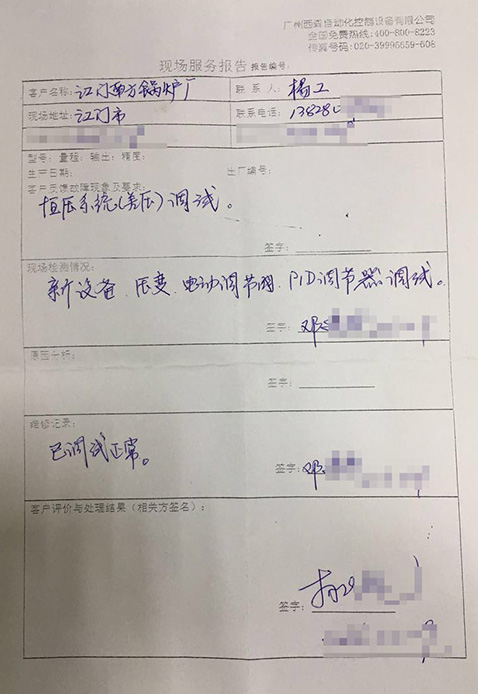 广州西森自动化控制设备有限公司
全国免费热线:400-800-8223
传真号码:020-39996659-608
现场服务报告 报告编号:
客户名称: 江门南方锅炉厂 联系人: 杨工
现场地址: 江门市 联系电话: 13828
型号: 量程: 输出: 精度:
生产日期: 出厂编号:
客户反馈故障现象及要求:
恒压系统(差压)调试。
签字:
现场检测情况:
新设备、压变、电动调节阀、PID调节器调试。
签字: 邓
原因分析:
签字:
维修记录:
已调试正常。
签字: 邓
客户评价与处理结果(相关方签名):
签字: